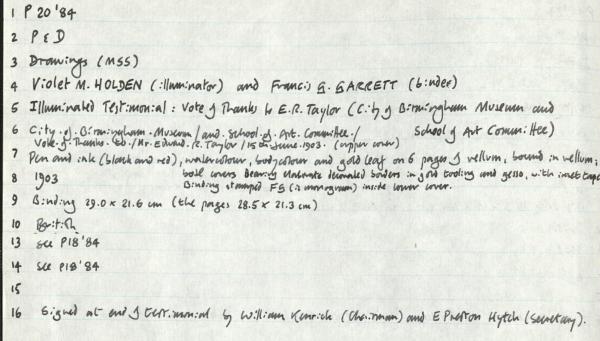 1 P 20 '84
2 P & D
3 Drawings (MSS)
4 Violet M. HOLDEN (illuminator) and Francis G. GARRETT (binder)
5 Illuminated Testimonial: Vote of Thanks to E.R. Taylor (City of Birmingham Museum and
School of Art Committee)
6 City. of. Birmingham. Museum / and. School. of. Art. Committee. /
Vote. of. Thanks. to. / Mr. Edward. R. Taylor / 15th June. 1903. (upper cover)
7 Pen and ink (black and red), watercolour, bodycolour and gold leaf on 6 pages of vellum, bound in vellum;
both covers bearing elaborate decorated borders in gold tooling and gesso, with inset
Binding stamped FG (in monogram) inside lower cover.
8 1903
9 Binding 29.0 x 21.6 cm (the pages 28.5 x 21.3 cm)
10 British
13 see P18 '84
14 see P18 '84
15
16 Signed at end of testimonial by William Kenrick (Chairman) and E Preston Hytch (Secretary).